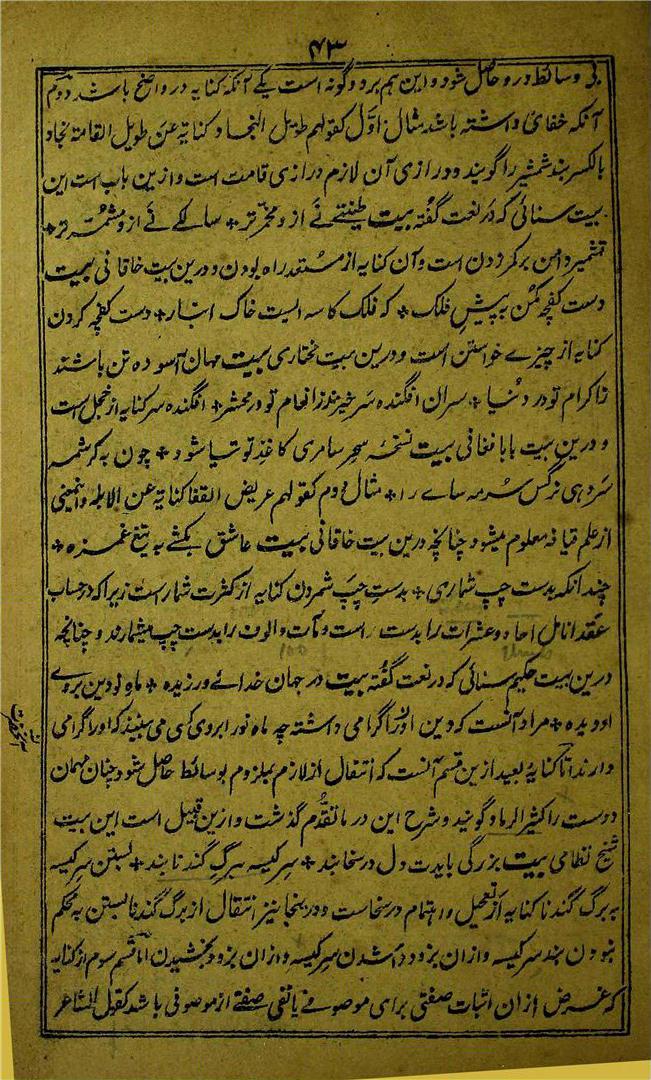 ۴۳
بی وسائط درو حاصل شود و این هم بر دو گونه است یکے آنکہ کنایہ درو واضح باشد دوم
آنکہ خفائی داشتہ باشد مثال اوّل کقولہم طویل النجاد کنایۃ عن طویل القامۃ نجاد
بالکسر بند شمشیر را گویند و درازی آن لازم درازی قامت است و ازین باب است این
بیت سنائی کہ در نعت گفتہ بیت طینتے نے ازو مخمّر تر + سالکے نے ازو مشمّر تر +
تشمیر دامن بر کمر زدن است و آن کنایہ از مستعد راہ بودن و درین بیت خاقانی بیت
دست کفچہ مکن بہ پیش فلک + کہ فلک کاسہ ایست خاک انبار + دست کفچہ کردن
کنایہ از چیزے خواستن است و درین بیت مختاری بیت مہمان آسودہ تن باشند
ز اکرام تو در دنیا + سران افگندہ سر خیزند ز انعام تو در محشر + افگندہ سر کنایہ از خجل است
و درین بیت بابا فغانی بیت نسخہ سحر سامری کاغذ توتیا شود + چون بہ کرشمہ
سر دہی نرگس سرمہ ساے را + مثال دوم کقولہم عریض القفا کنایۃ عن الابلہ و اینمعنی
از علم قیافہ معلوم میشود چنانچہ درین بیت خاقانی بیت عاشق بکشے بہ تیغ غمزہ +
چندانکہ بدست چپ شماری + بدست چپ شمردن کنایہ از کثرت شمار است زیرا کہ در حساب
عقد انامل احاد و عشرات را بدست راست و مآت و الوف را بدست چپ میشمارند و چنانچہ
درین بیت حکیم سنائی کہ در نعت گفتہ بیت در جہان خداے ورزیدہ + ماہ نو دین بروے
او دیدہ + مراد آنست کہ دین او را گرامی داشتہ چہ ماہ نو را بروی کسی می بینند کہ او را گرامی
دارند اما کنایۂ بعید ازین قسم آنست کہ انتقال از لازم بملزوم بوسائط حاصل شود چنان مہمان
دوست را کثیر الرماد گویند و شرح این در ما تقدّم گذشت و ازین قبیل است این بیت
شیخ نظامی بیت بزرگی بایدت دل در سخا بند + سر کیسہ ببرگ گندنا بند + بستن سر کیسہ
بہ برگ گندنا کنایہ از تعجیل و اہتمام در سخاست و در ینجا نیز انتقال از برگ گندنا بستن بہ محکم
نبودن بند سر کیسہ و ازان بزود وا شدن سر کیسہ و ازان بزود بخشیدن اما قسم سوم از کنایہ
کہ غرض ازان اثبات صفتی برای موصوفے یا نفی صفتے از موصوفی باشد کقول الشاعر